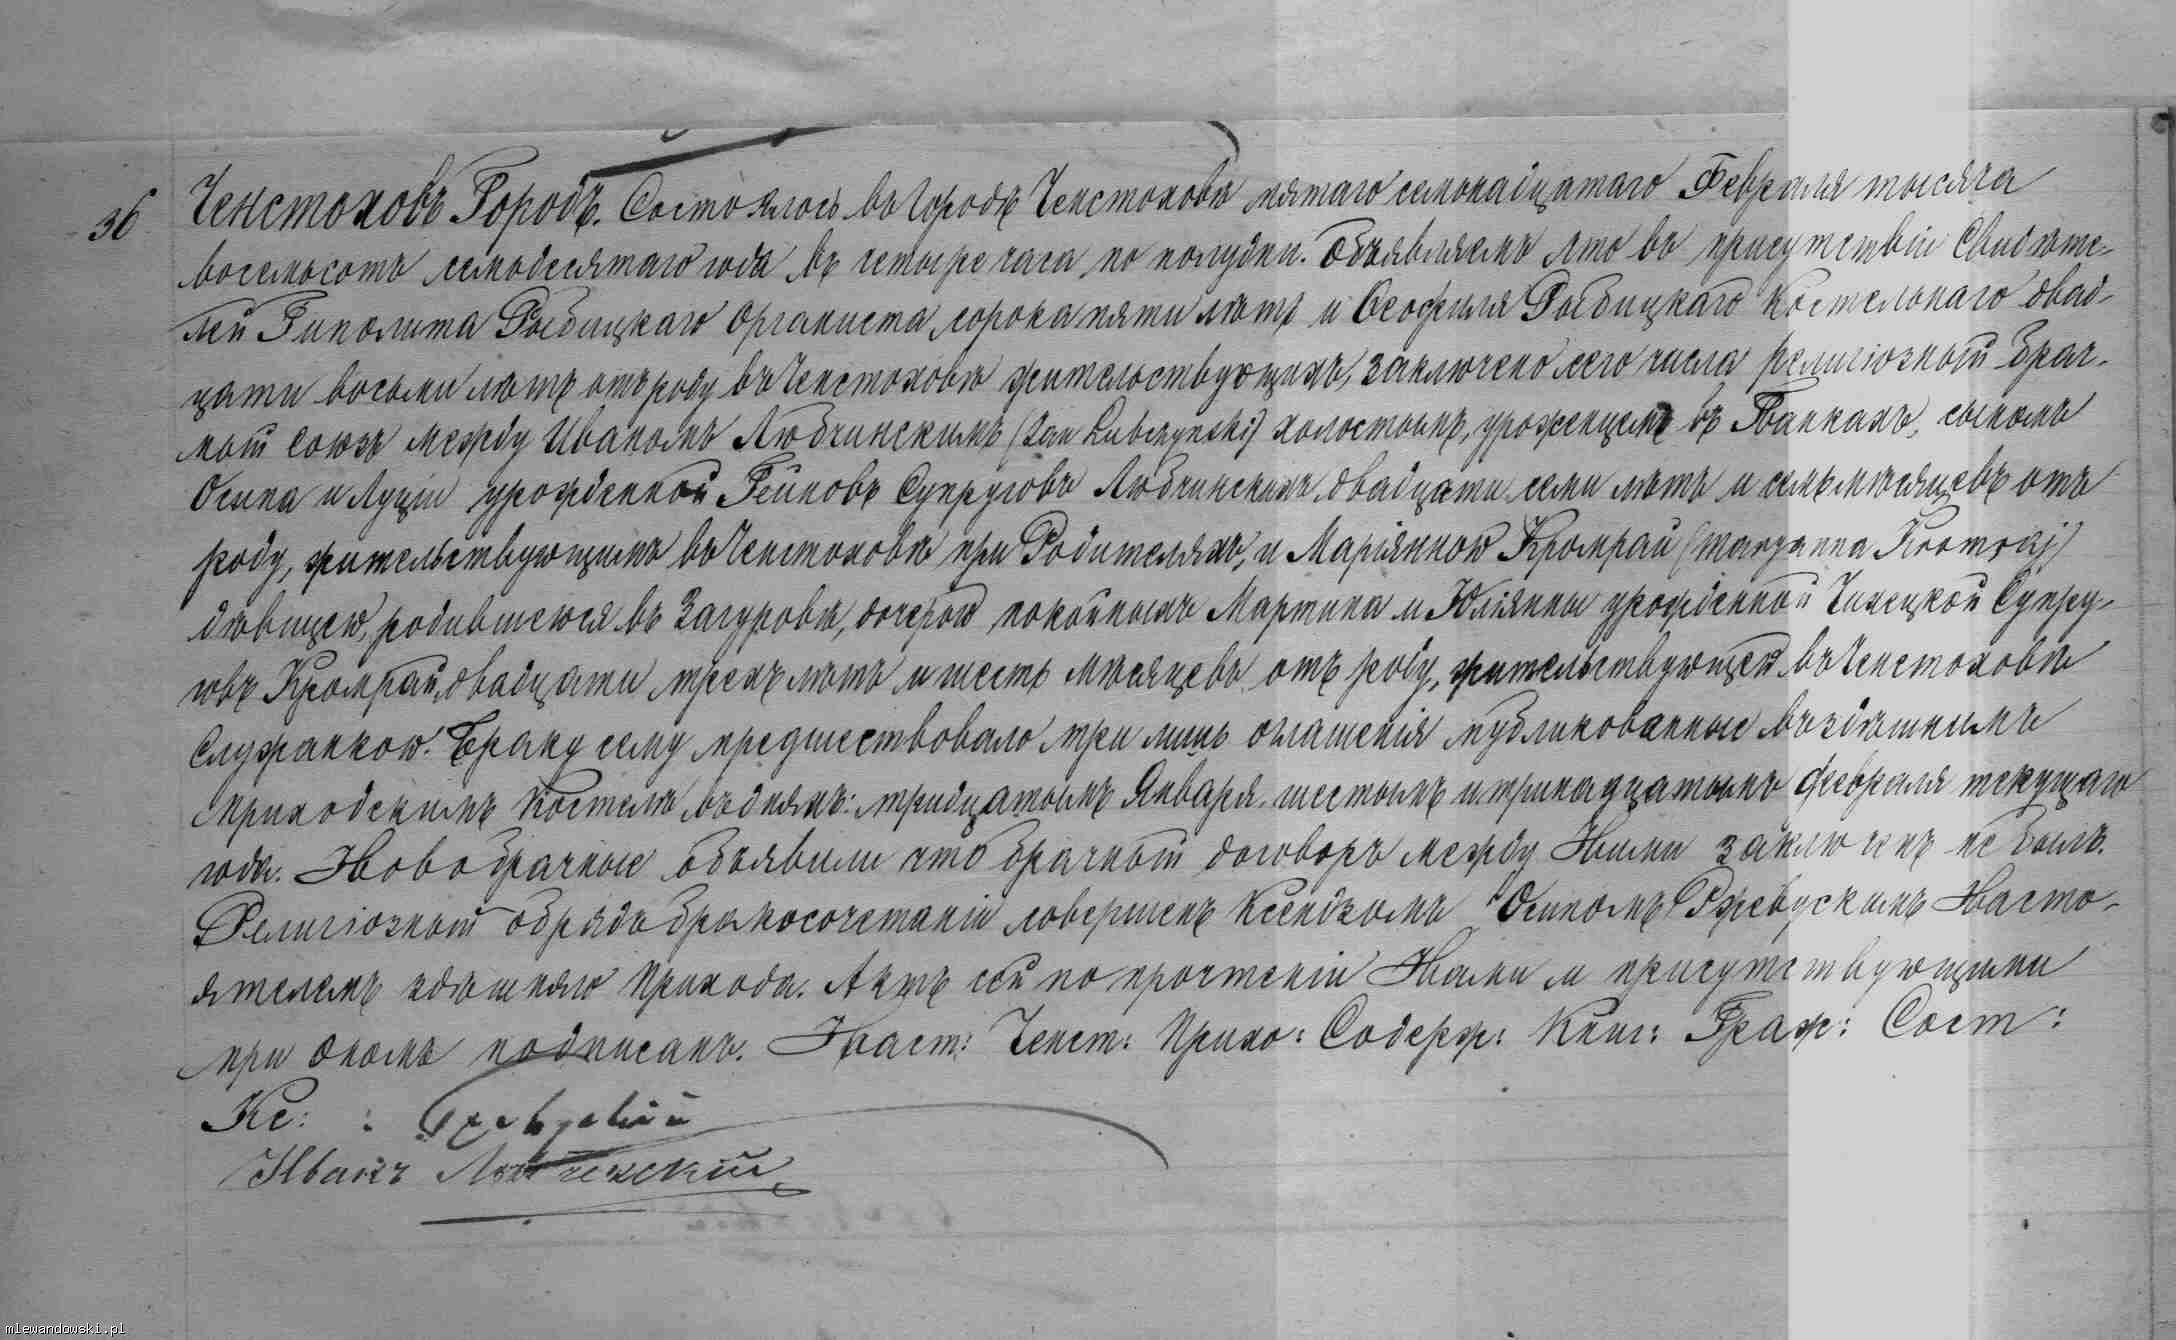 36
Ченстоховъ Городъ. Состоялось въ Городѣ Ченстоховѣ пятаго семьнадцатаго Февраля тысяча
восемьсотъ семьдесятаго года въ четыре часа по полудни. Объявляемъ что въ присутствіи Свидѣте-
лей Гиполита Рыбицкаго Органиста сорока пяти лѣтъ и Ѳеофиля Рыбицкаго Костельнаго двад-
цати восьми лѣтъ отъ роду въ Ченстоховѣ жительствующихъ, заключено сего числа религіозный брач-
ный союзъ между Иваномъ Любчинскимъ (Jan Lubczynski) холостымъ, уроженцемъ въ Банкахъ, сыномъ
Осипа и Луціи урожденной Гейновъ Супруговъ Любчинскихъ двадцати семи лѣтъ и семь мѣсяцевъ отъ
роду, жительствующимъ въ Ченстоховѣ при Родителяхъ, и Маріянною Кромрай (Maryanna Kromraj)
дѣвицею, родившеюся въ Загуровѣ, дочерью покойныхъ Мартина и Юліянны урожденной Супру-
говъ Кромрай двадцати трехъ лѣтъ и шесть мѣсяцевъ отъ роду, жительствующей въ Ченстоховѣ
Служанкою. Браку сему предшествовало три оглашенія публикованные въ здѣшнимъ
приходскимъ Костелѣ въ дняхъ: тридцатомъ Января, шестымъ и тринадцатымъ февраля текущаго
года. Новобрачные объявили что брачный договоръ между Ними заключенъ не былъ.
Религіозный обрядъ бракосочетанія совершенъ Ксендзомъ Осипомъ Ржевускимъ Насто-
ятелемъ здѣшняго прихода. Актъ сей по прочтеніи Нами и присутствующими
при ономъ подписанъ. Наст: Ченст: Прихо: Содерж: Книг: Граж: Сост:
Кс: :
Иванъ
mlewandowski.pl